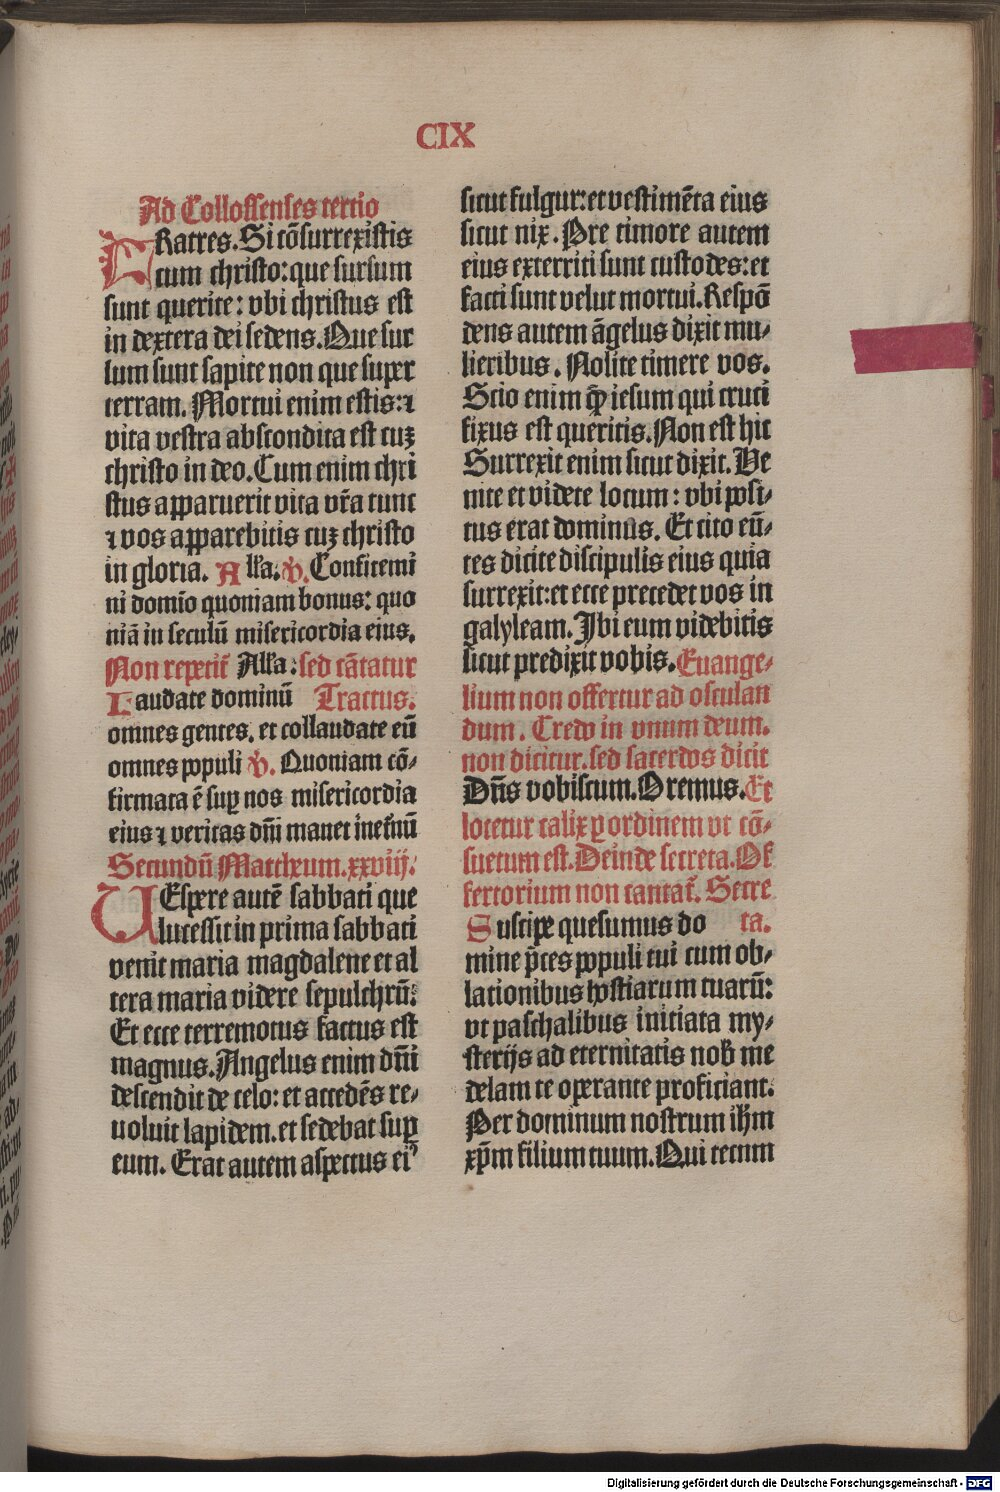 CIX
Ad Collossenses tertio
FRatres. Si cōsurrexistis
cum christo: que sursum
sunt querite: vbi christus est
in dextera dei sedens. Que sur
sum sunt sapite non que super
terram. Mortui enim estis: ⁊
vita vestra abscondita est cuȝ
christo in deo. Cum enim chri
stus apparuerit vita vr̄a tunc
⁊ vos apparebitis cuȝ christo
in gloria. Alla. ℣. Confitemi
ni domīo quoniam bonus: quo
niā in seculū misericordia eius.
Non repetit᷑ Alla: sed cātatur
Laudate dominū Tractus.
omnes gentes. et collaudate eū
omnes populi ℣. Quoniam cō-
firmata ē suꝑ nos misericordia
eius ⁊ veritas dn̄i manet in et̄nū
Secundū Mattheum. xxviij.
VEspere autē sabbati que
lucessit in prima sabbati
venit maria magdalene et al
tera maria videre sepulchrū:
Et ecce terremotus factus est
magnus. Angelus enim dn̄i
descendit de celo: et accedēs re-
uoluit lapidem. et sedebat suꝑ
eum. Erat autem aspectus eiꝰ
sicut fulgur: et vestimēta eius
sicut nix. Pre timore autem
eius exterriti sunt custodes: et
facti sunt velut mortui. Respō
dens autem āgelus dixit mu-
lieribus. Nolite timere vos.
Scio enim ꝙ iesum qui cruci
fixus est queritis. Non est hic
Surrexit enim sicut dixit. Ve
nite et videte locum: vbi posi-
tus erat dominus. Et cito eū-
tes dicite discipulis eius quia
surrexit: et ecce precedet vos in
galyleam. Ibi eum videbitis
sicut predixit vobis. Euange-
lium non offertur ad osculan
dum. Credo in vnum deum.
non dicitur. sed sacerdos dicit
Dn̄s vobiscum. Oremus. Et
locetur calix ꝑ ordinem vt cō-
suetum est. Deinde secreta. Of
fertorium non cantat᷑. Secre
Suscipe quesumus do ta.
mine p̄ces populi tui cum ob-
lationibus hostiarum tuarū:
vt paschalibus initiata my-
sterijs ad eternitatis nob̄ me
delam te operante proficiant.
Per dominum nostrum ih̄m
xp̄m filium tuum. Qui tecum
Digitalisierung gefördert durch die Deutsche Forschungsgemeinschaft - DFG